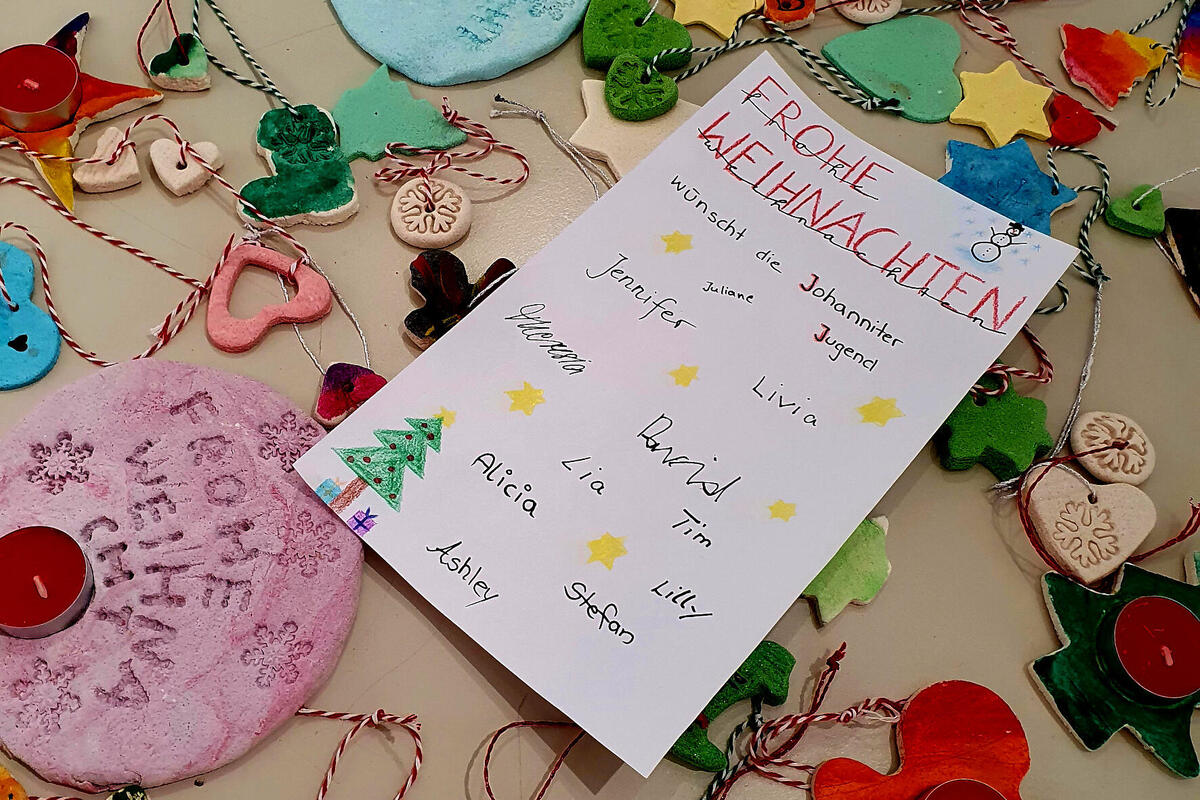 FROHE
Frohe
WEIHNACHTEN
Weihnachten
wünscht die Johanniter
Jugend
Jennifer
Juliane
Livia
David
Lia
Alicia
Tim
Ashley
Stefan
Lilly
FROHE
WEIHNA